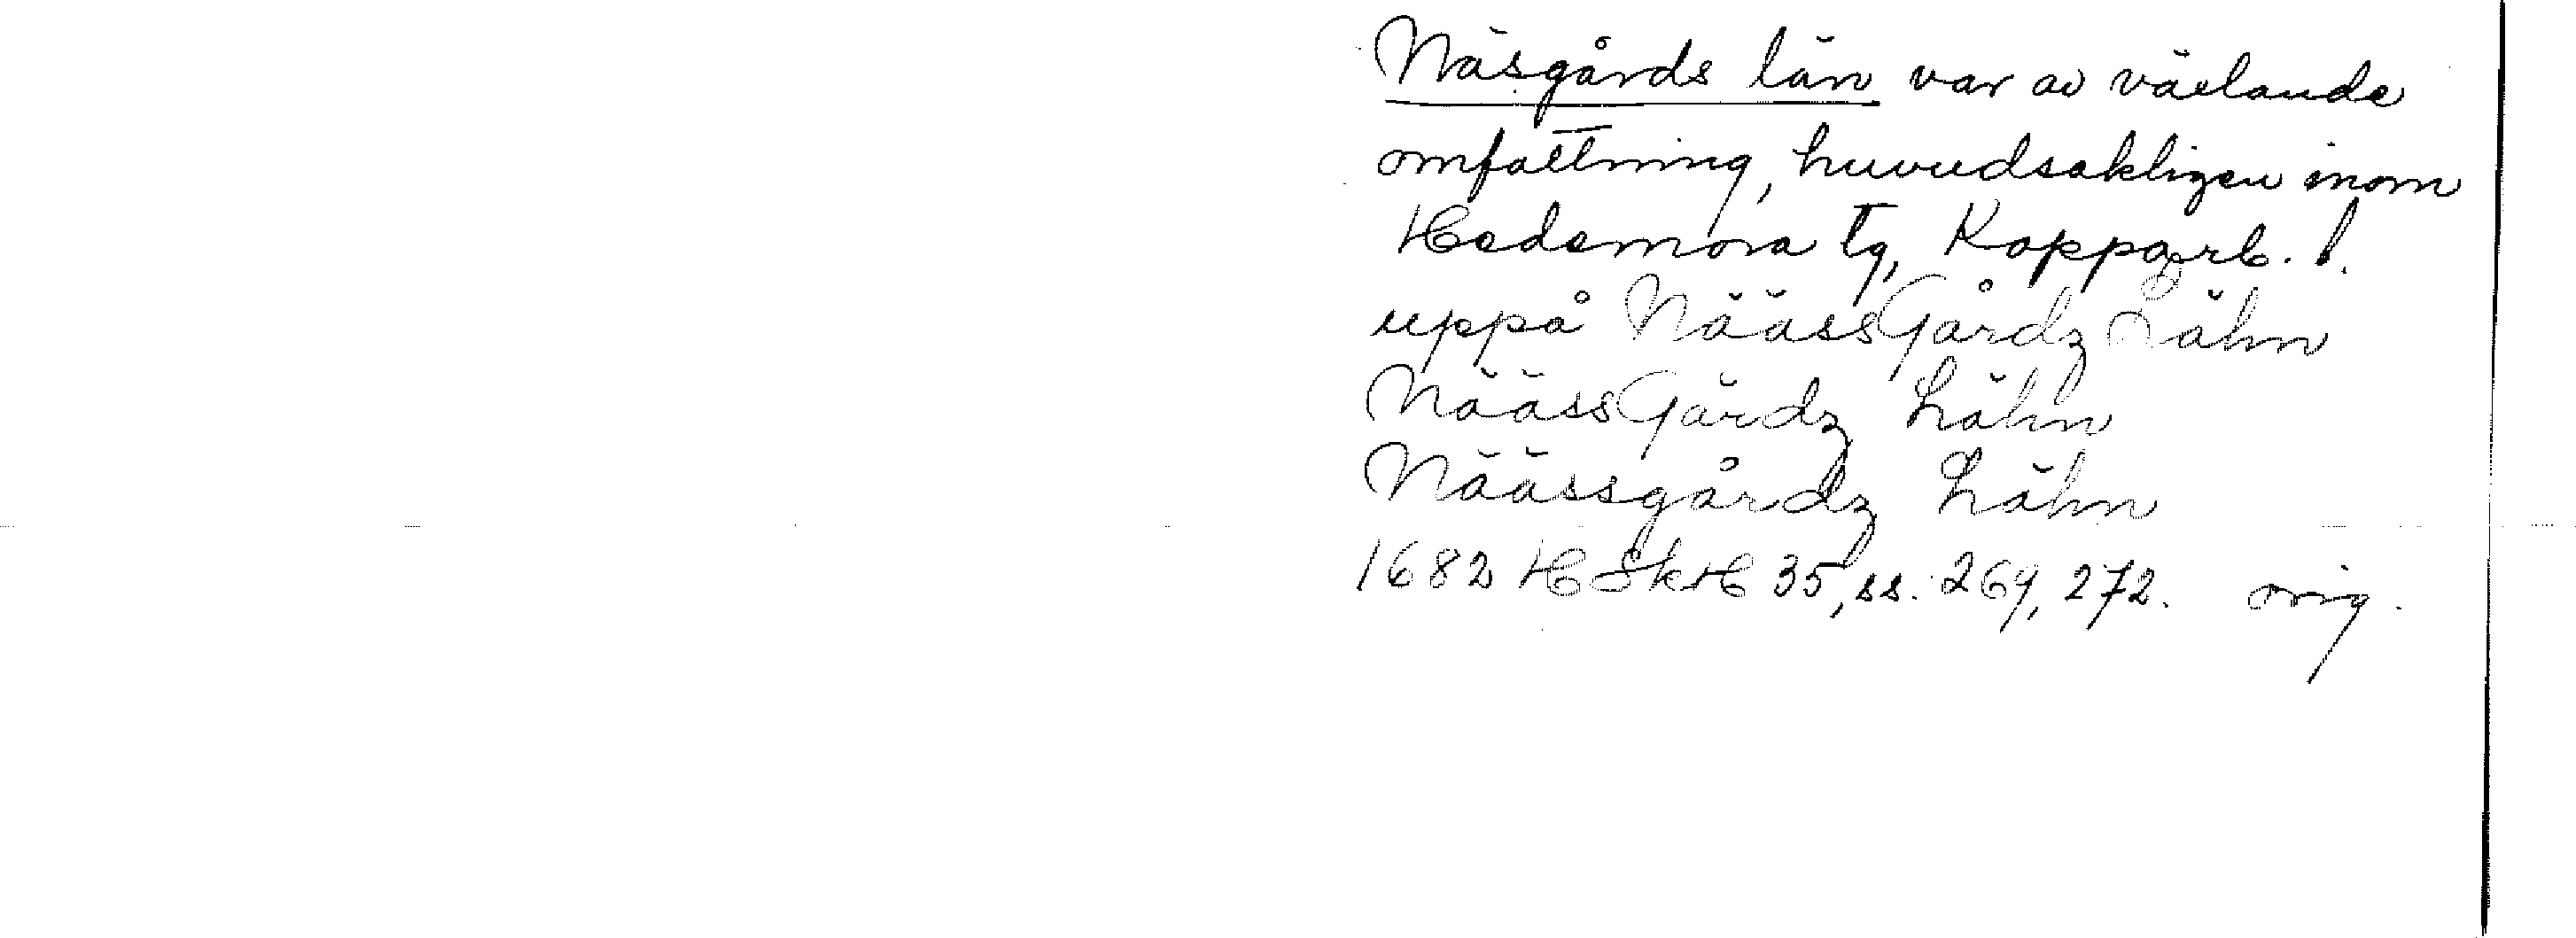 Näsgårds län var av växlande
omfattning, huvudsakligen inom
Hedemora tg, Kopparb. l.
uppå NäässGårdz Lähn
NäässGärdz Lähn
Näässgårdz Lähn
1682 HSkH 35, ss. 269, 272. orig.